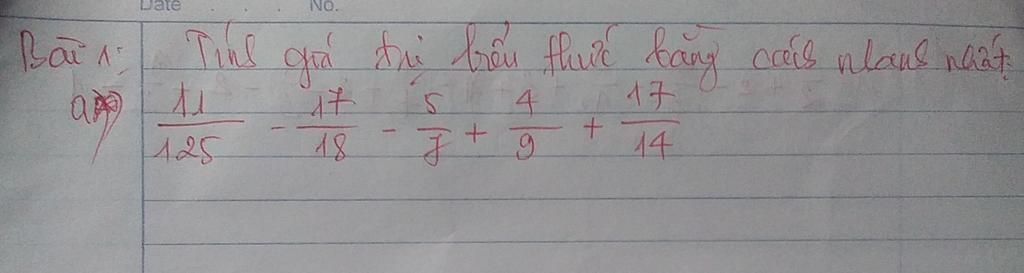 Date . . . No.
Bài 1: Tính giá trị biểu thức bằng cách nhanh nhất:
a) 11/125 - 17/18 - 5/7 + 4/9 + 17/14